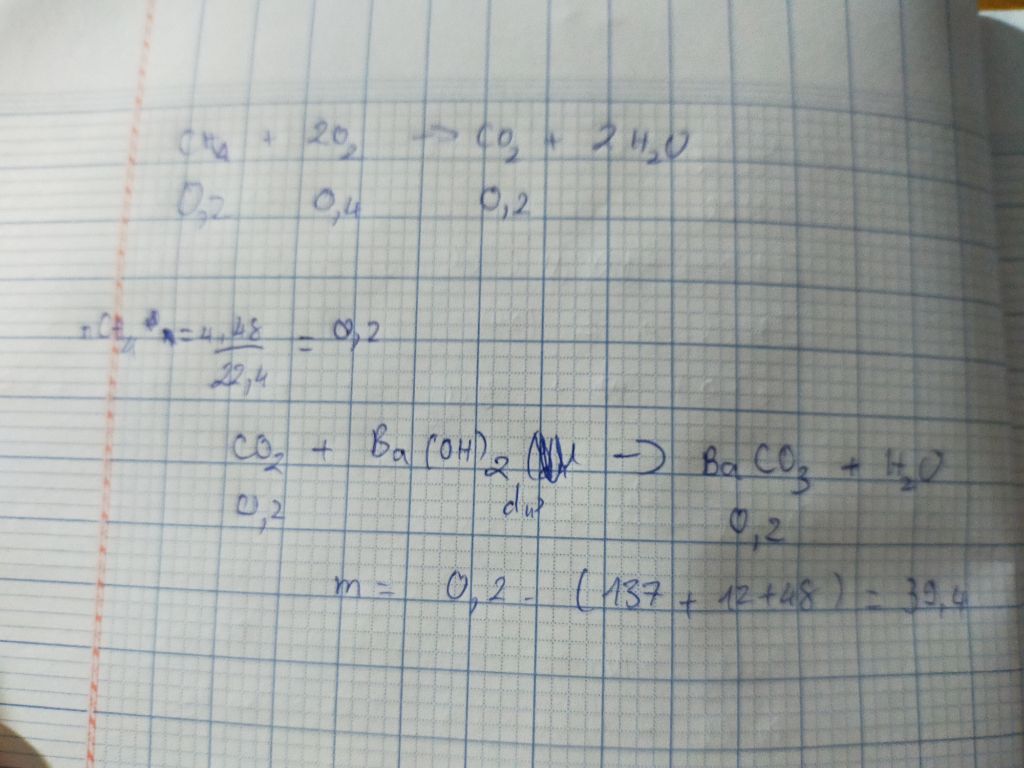 CH₄ + 2O₂ → CO₂ + 2H₂O
0,2 0,4 0,2
nCH₄ = 4,48 / 22,4 = 0,2
CO₂ + Ba(OH)₂ → BaCO₃ + H₂O
0,2 dư 0,2
m = 0,2 . (137 + 12 + 48) = 39,4